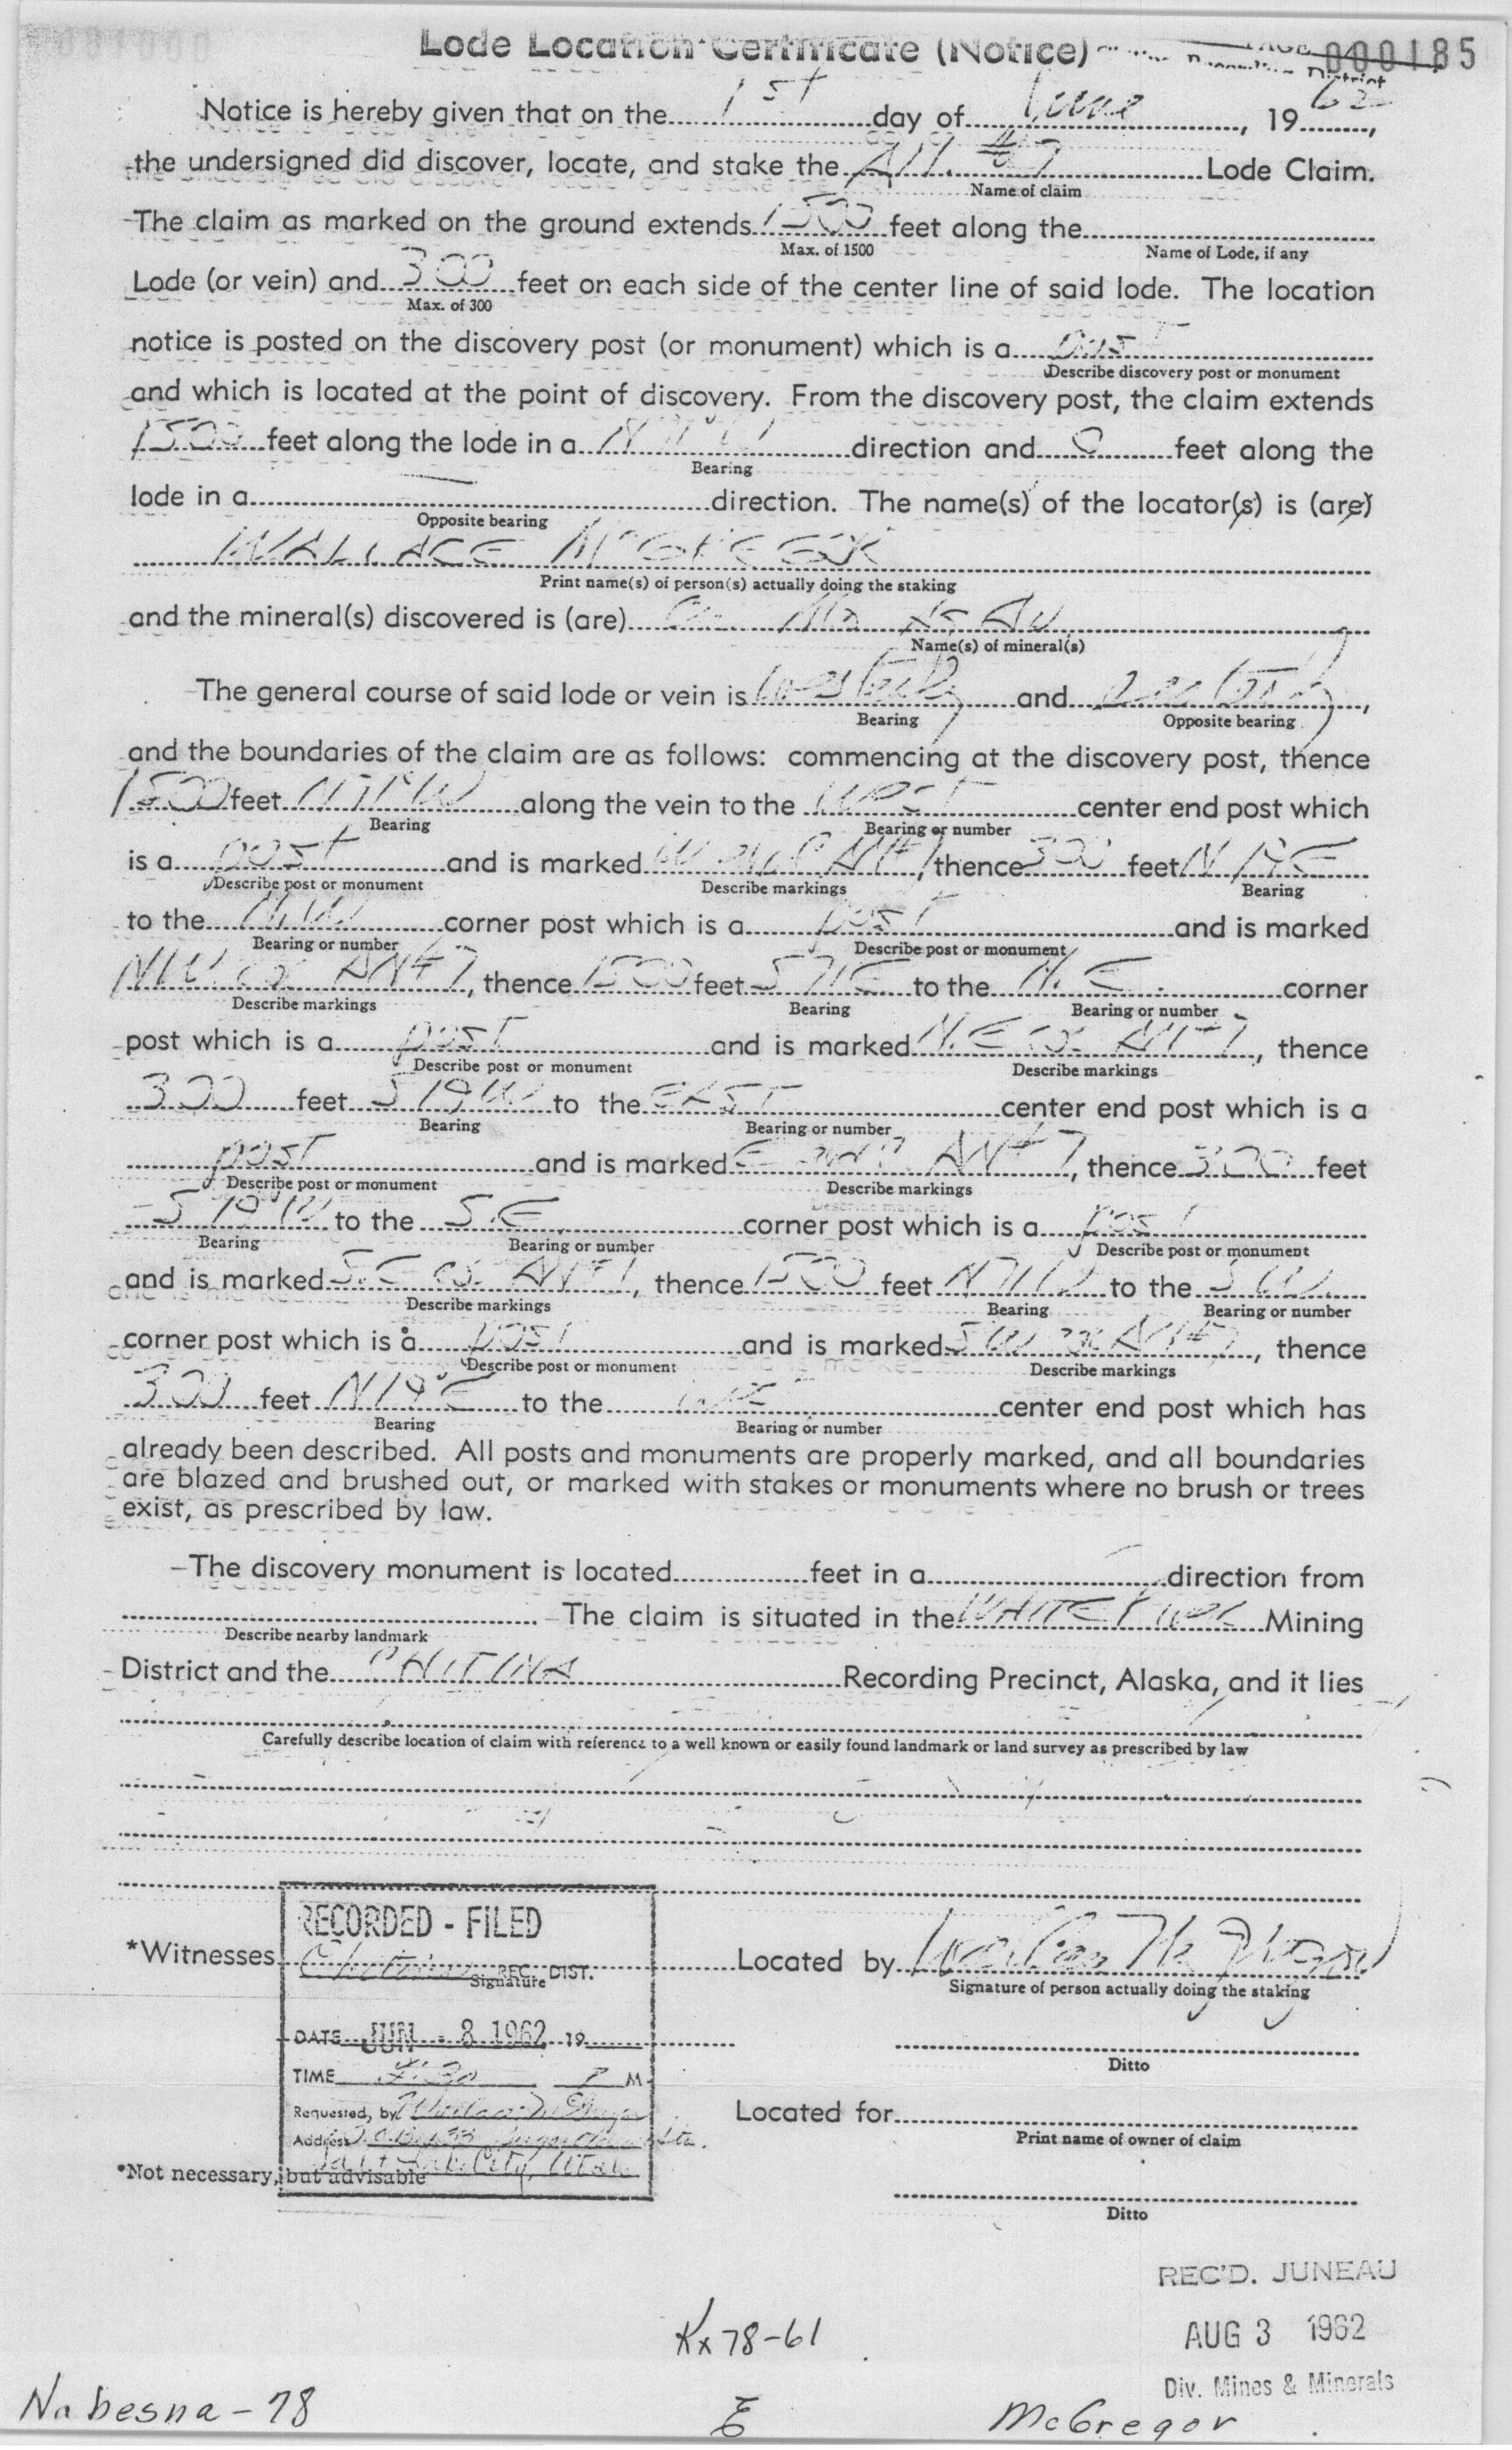 Lode Location Certificate (Notice)
000185
Notice is hereby given that on the 1st day of June, 1962,
the undersigned did discover, locate, and stake the AN #7 Lode Claim.
Name of claim
The claim as marked on the ground extends 1500 feet along the
Max. of 1500 Name of Lode, if any
Lode (or vein) and 300 feet on each side of the center line of said lode. The location
Max. of 300
notice is posted on the discovery post (or monument) which is a post
Describe discovery post or monument
and which is located at the point of discovery. From the discovery post, the claim extends
1500 feet along the lode in a N71W direction and 0 feet along the
Bearing
lode in a direction. The name(s) of the locator(s) is (are)
Opposite bearing
WALLACE McGREGOR
Print name(s) of person(s) actually doing the staking
and the mineral(s) discovered is (are) Cu Mo Ag Au
Name(s) of mineral(s)
The general course of said lode or vein is westerly and easterly,
Bearing Opposite bearing
and the boundaries of the claim are as follows: commencing at the discovery post, thence
1500 feet N71W along the vein to the West center end post which
Bearing Bearing or number
is a post and is marked AN#7, thence 300 feet N19E
Describe post or monument Describe markings Bearing
to the N.W. corner post which is a post and is marked
Bearing or number Describe post or monument
NW cor AN#7, thence 1500 feet S71E to the N.E. corner
Describe markings Bearing Bearing or number
post which is a post and is marked N.E cor AN#7, thence
Describe post or monument Describe markings
300 feet S19W to the EAST center end post which is a
Bearing Bearing or number
post and is marked E AN#7, thence 300 feet
Describe post or monument Describe markings
S19W to the S.E. corner post which is a post
Bearing Bearing or number Describe post or monument
and is marked S.E cor AN#7, thence 1500 feet N71W to the SW
Describe markings Bearing Bearing or number
corner post which is a post and is marked SW cor AN#7, thence
Describe post or monument Describe markings
300 feet N19E to the center end post which has
Bearing Bearing or number
already been described. All posts and monuments are properly marked, and all boundaries
are blazed and brushed out, or marked with stakes or monuments where no brush or trees
exist, as prescribed by law.
The discovery monument is located feet in a direction from
The claim is situated in the WHITE RIVER Mining
Describe nearby landmark
District and the CHITINA Recording Precinct, Alaska, and it lies
Carefully describe location of claim with reference to a well known or easily found landmark or land survey as prescribed by law
RECORDED - FILED
*Witnesses Chitina REC. DIST. Located by Wallace McGregor
Signature Signature of person actually doing the staking
DATE JUN - 8 1962 19
Ditto
TIME P M
Requested by Wallace McGregor
Located for
Address
Print name of owner of claim
Salt Lake City, Utah
*Not necessary, but advisable
Ditto
REC'D. JUNEAU
AUG 3 1962
Div. Mines & Minerals
Kx 78-61
Nabesna - 78
McGregor